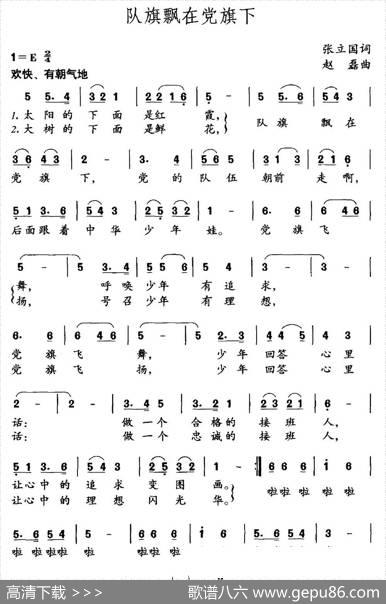 队旗飘在党旗下
张立国词
1=E 2/4
赵磊曲
欢快、有朝气地
5 5. 4 | 3 2 1 | 2 2 1 6 | 5 - | 5 5. 6 | 5 4 3 |
1.太阳的下面是红霞, 队旗飘在
2.大树的下面是鲜花,
3 6 4 3 | 2 - | 1. 3 | 5 6 6 | 3 1 3 | 2 2 |
党旗下, 党的队伍朝前走啊,
5 1 3. 6 | 5 4 3 | 2 5 3 2 | 1 - | 6. 6 | 6 4 6 |
后面跟着中华少年娃。党旗飞
5 - | 5 3. 4 | 5 5 6 | 5 4 | 3 - | 3 - |
舞, 呼唤少年有追求,
扬, 号召少年有理想,
6. 6 | 7 6 4 6 | 5 - | 5 2. 3 | 5 4 4 | 4 3 |
党旗飞舞, 少年回答心里
党旗飞扬, 少年回答心里
2 - | 2 - | 3. 4 5 | 3. 2 1 | 2 3 2 1 | 6 - |
话: 做一个合格的接班人,
话: 做一个忠诚的接班人,
5 1 3. 6 | 5 4 3 | 2 5 3 2 | 1 - :| 6 6 6 | 5. 6 5 4 |
让心中的追求变图画。 啦啦啦啦啦啦
让心中的理想闪光华。
5. 6 5 4 | 3 - | 6 6 6 | 6 - | i 6 | 5. 5 3 |
啦啦啦啦啦
高清下载 >>>
歌谱八六 www.gepu86.com